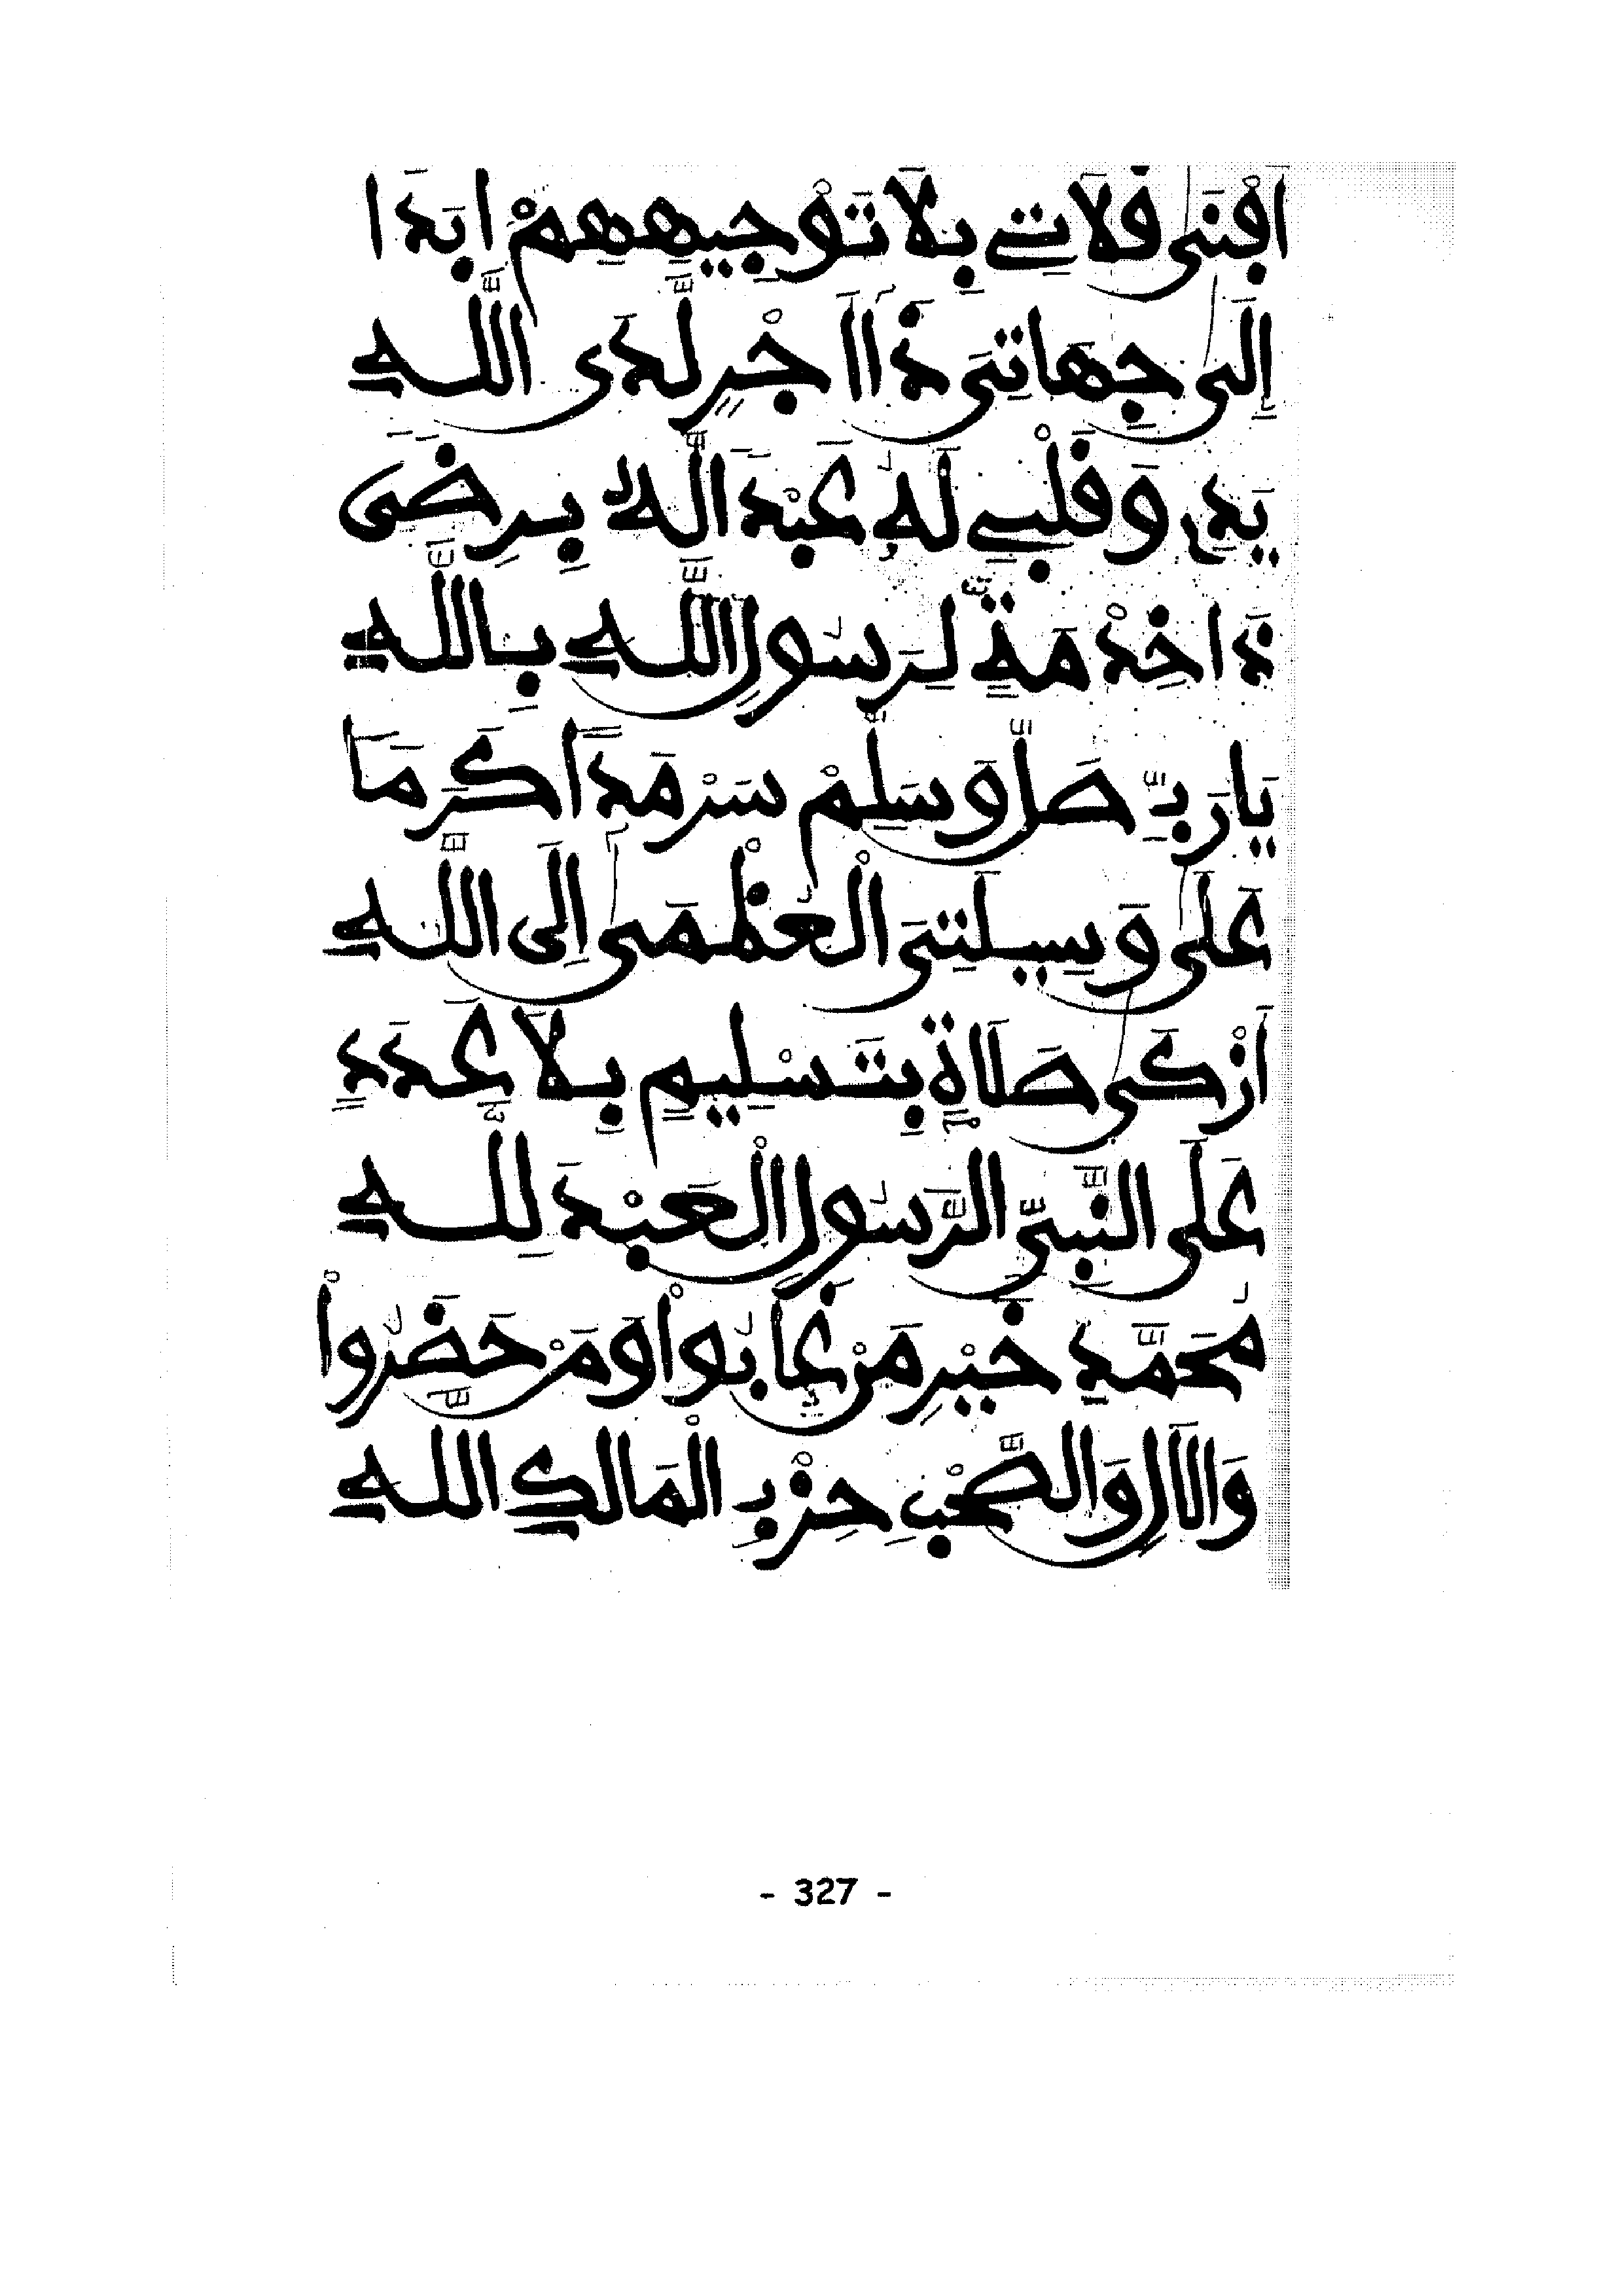 اَفْنَى فُلَاتِي بِلَا تَوْجِيهِهِمْ اَبَدَا
اِلَى جِهَاتِىَ ذَا اَجْرٍ لَدَى اللَّهِ
يَدِي وَقَلْبِي لَهُ عَبْدَ اللَّهُ بِرِضَى
ذَا خِدْمَةٍ لِرَسُولِ اللَّهِ بِاللَّهِ
يَا رَبِّ صَلِّ وَسَلِّمْ سَرْمَدًا كَرَمَا
عَلَى وَسِيلَتِىَ الْعُظْمَى اِلَى اللَّهِ
اَزْكَى صَلَاةٍ بِتَسْلِيمٍ بِلَا عَدَدٍ
عَلَى النَّبِيِّ الرَّسُولِ الْعَبْدِ لِلَّهِ
مُحَمَّدٍ خَيْرِ مَنْ غَابُواْ وَمَنْ حَضَرُواْ
وَالْآلِ وَالصَّحْبِ حِزْبِ الْمَالِكِ اللَّهِ
- 327 -